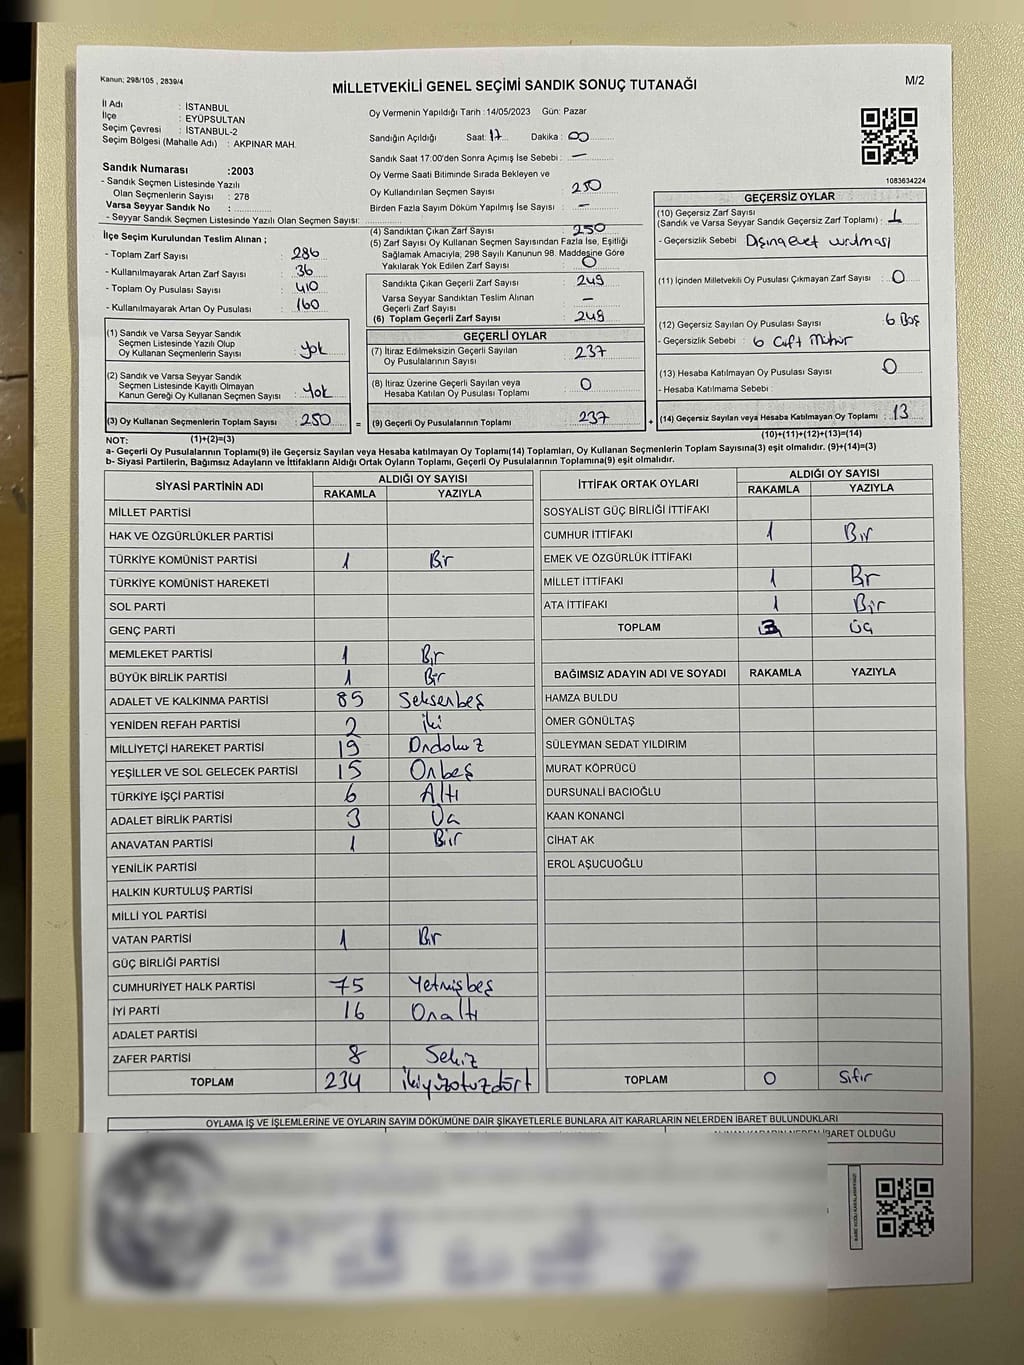 Kanun; 298/105 , 2839/4
MİLLETVEKİLİ GENEL SEÇİMİ SANDIK SONUÇ TUTANAĞI
M/2
İl Adı : İSTANBUL
İlçe : EYÜPSULTAN
Seçim Çevresi : İSTANBUL-2
Seçim Bölgesi (Mahalle Adı) : AKPINAR MAH.
Sandık Numarası :2003
- Sandık Seçmen Listesinde Yazılı
Olan Seçmenlerin Sayısı : 278
Varsa Seyyar Sandık No :
- Seyyar Sandık Seçmen Listesinde Yazılı Olan Seçmen Sayısı:
İlçe Seçim Kurulundan Teslim Alınan ;
- Toplam Zarf Sayısı : 286
- Kullanılmayarak Artan Zarf Sayısı : 36
- Toplam Oy Pusulası Sayısı : 410
- Kullanılmayarak Artan Oy Pusulası : 160
(1) Sandık ve Varsa Seyyar Sandık
Seçmen Listesinde Yazılı Olup
Oy Kullanan Seçmenlerin Sayısı : Yok
(2) Sandık ve Varsa Seyyar Sandık
Seçmen Listesinde Kayıtlı Olmayan
Kanun Gereği Oy Kullanan Seçmen Sayısı : Yok
(3) Oy Kullanan Seçmenlerin Toplam Sayısı : 250
(1)+(2)=(3)
Oy Vermenin Yapıldığı Tarih : 14/05/2023 Gün: Pazar
Sandığın Açıldığı Saat: 17 Dakika : 00
Sandık Saat 17:00'den Sonra Açımış İse Sebebi : —
Oy Verme Saati Bitiminde Sırada Bekleyen ve
Oy Kullandırılan Seçmen Sayısı : 250
Birden Fazla Sayım Döküm Yapılmış İse Sayısı : —
(4) Sandıktan Çıkan Zarf Sayısı : 250
(5) Zarf Sayısı Oy Kullanan Seçmen Sayısından Fazla İse, Eşitliği
Sağlamak Amacıyla, 298 Sayılı Kanunun 98. Maddesine Göre
Yakılarak Yok Edilen Zarf Sayısı : 0
Sandıkta Çıkan Geçerli Zarf Sayısı : 249
Varsa Seyyar Sandıktan Teslim Alınan
Geçerli Zarf Sayısı : —
(6) Toplam Geçerli Zarf Sayısı : 249
GEÇERLİ OYLAR
(7) İtiraz Edilmeksizin Geçerli Sayılan
Oy Pusulalarının Sayısı : 237
(8) İtiraz Üzerine Geçerli Sayılan veya
Hesaba Katılan Oy Pusulası Toplamı : 0
= (9) Geçerli Oy Pusulalarının Toplamı : 237
1083634224
GEÇERSİZ OYLAR
(10) Geçersiz Zarf Sayısı
(Sandık ve Varsa Seyyar Sandık Geçersiz Zarf Toplamı) : 1
- Geçersizlik Sebebi : Dışına evet vurulması
(11) İçinden Milletvekili Oy Pusulası Çıkmayan Zarf Sayısı : 0
(12) Geçersiz Sayılan Oy Pusulası Sayısı : 6 Boş
- Geçersizlik Sebebi : 6 Çift Mühür
(13) Hesaba Katılmayan Oy Pusulası Sayısı : 0
- Hesaba Katılmama Sebebi :
+ (14) Geçersiz Sayılan veya Hesaba Katılmayan Oy Toplamı : 13
(10)+(11)+(12)+(13)=(14)
NOT:
a- Geçerli Oy Pusulalarının Toplamı(9) ile Geçersiz Sayılan veya Hesaba katılmayan Oy Toplamı(14) Toplamları, Oy Kullanan Seçmenlerin Toplam Sayısına(3) eşit olmalıdır. (9)+(14)=(3)
b- Siyasi Partilerin, Bağımsız Adayların ve İttifakların Aldığı Ortak Oyların Toplamı, Geçerli Oy Pusulalarının Toplamına(9) eşit olmalıdır.
SİYASİ PARTİNİN ADI ALDIĞI OY SAYISI
RAKAMLA YAZIYLA
MİLLET PARTİSİ
HAK VE ÖZGÜRLÜKLER PARTİSİ
TÜRKİYE KOMÜNİST PARTİSİ 1 Bir
TÜRKİYE KOMÜNİST HAREKETİ
SOL PARTİ
GENÇ PARTİ
MEMLEKET PARTİSİ 1 Bir
BÜYÜK BİRLİK PARTİSİ 1 Bir
ADALET VE KALKINMA PARTİSİ 85 Seksenbeş
YENİDEN REFAH PARTİSİ 2 iki
MİLLİYETÇİ HAREKET PARTİSİ 19 Ondokuz
YEŞİLLER VE SOL GELECEK PARTİSİ 15 Onbeş
TÜRKİYE İŞÇİ PARTİSİ 6 Altı
ADALET BİRLİK PARTİSİ 3 Üç
ANAVATAN PARTİSİ 1 Bir
YENİLİK PARTİSİ
HALKIN KURTULUŞ PARTİSİ
MİLLİ YOL PARTİSİ
VATAN PARTİSİ 1 Bir
GÜÇ BİRLİĞİ PARTİSİ
CUMHURİYET HALK PARTİSİ 75 Yetmişbeş
İYİ PARTİ 16 Onaltı
ADALET PARTİSİ
ZAFER PARTİSİ 8 Sekiz
TOPLAM 234 ikiyüzotuzdört
İTTİFAK ORTAK OYLARI ALDIĞI OY SAYISI
RAKAMLA YAZIYLA
SOSYALİST GÜÇ BİRLİĞİ İTTİFAKI
CUMHUR İTTİFAKI 1 Bir
EMEK VE ÖZGÜRLÜK İTTİFAKI
MİLLET İTTİFAKI 1 Bir
ATA İTTİFAKI 1 Bir
TOPLAM 3 Üç
BAĞIMSIZ ADAYIN ADI VE SOYADI RAKAMLA YAZIYLA
HAMZA BULDU
ÖMER GÖNÜLTAŞ
SÜLEYMAN SEDAT YILDIRIM
MURAT KÖPRÜCÜ
DURSUNALİ BACIOĞLU
KAAN KONANCİ
CİHAT AK
EROL AŞUCUOĞLU
TOPLAM 0 Sıfır
OYLAMA İŞ VE İŞLEMLERİNE VE OYLARIN SAYIM DÖKÜMÜNE DAİR ŞİKAYETLERLE BUNLARA AİT KARARLARIN NELERDEN İBARET BULUNDUKLARI
İBARET OLDUĞU